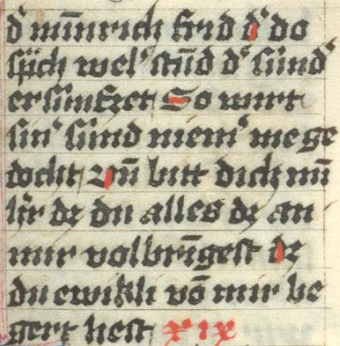 dˀ mīnrich frid dˀ do
sp̄ch welˀ stūd dˀ sündˀ
ersüntzet So wirt
sinˀ sünd niemˀ me ge
docht vn̄ bitt dich mī
hˀr dz du alles dz an
mir volbrīgest dz
du ewikli vō mir be
gert hest xix